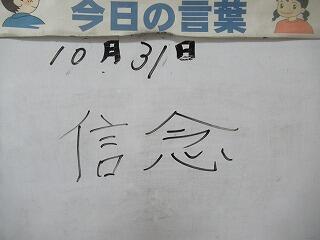 今日の言葉
10月31日
信念